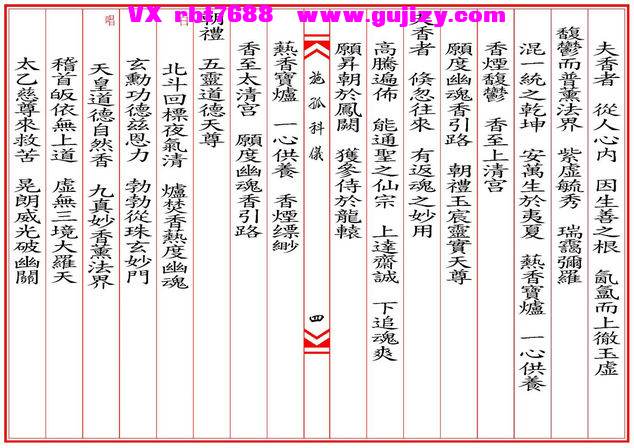 VX rbt7688 www.gujizy.com
夫香者 從人心內 因生善之根 氤氳而上徹玉虛
馥鬱而普薰法界 紫虛毓秀 瑞靄彌羅
混一統之乾坤 安萬生於夷夏 爇香寶爐 一心供養
香煙馥鬱 香至上清宮
願度幽魂香引路 朝禮玉宸靈寶天尊
夫香者 倏忽往來 有返魂之妙用
高騰遍佈 能通聖之仙宗 上達齋誠 下追魂爽
願昇朝於鳳闕 獲參侍於龍轅
施孤科儀
四
爇香寶爐 一心供養 香煙縹緲
香至太清宮 願度幽魂香引路
朝禮 五靈道德天尊
北斗回標夜氣清 爐焚香爇度幽魂
玄勳功德茲恩力 勃勃從珠玄妙門
唱
天皇道德自然香 九真妙香薰法界
稽首皈依無上道 虛無三境大羅天
太乙慈尊來救苦 晃朗威光破幽關